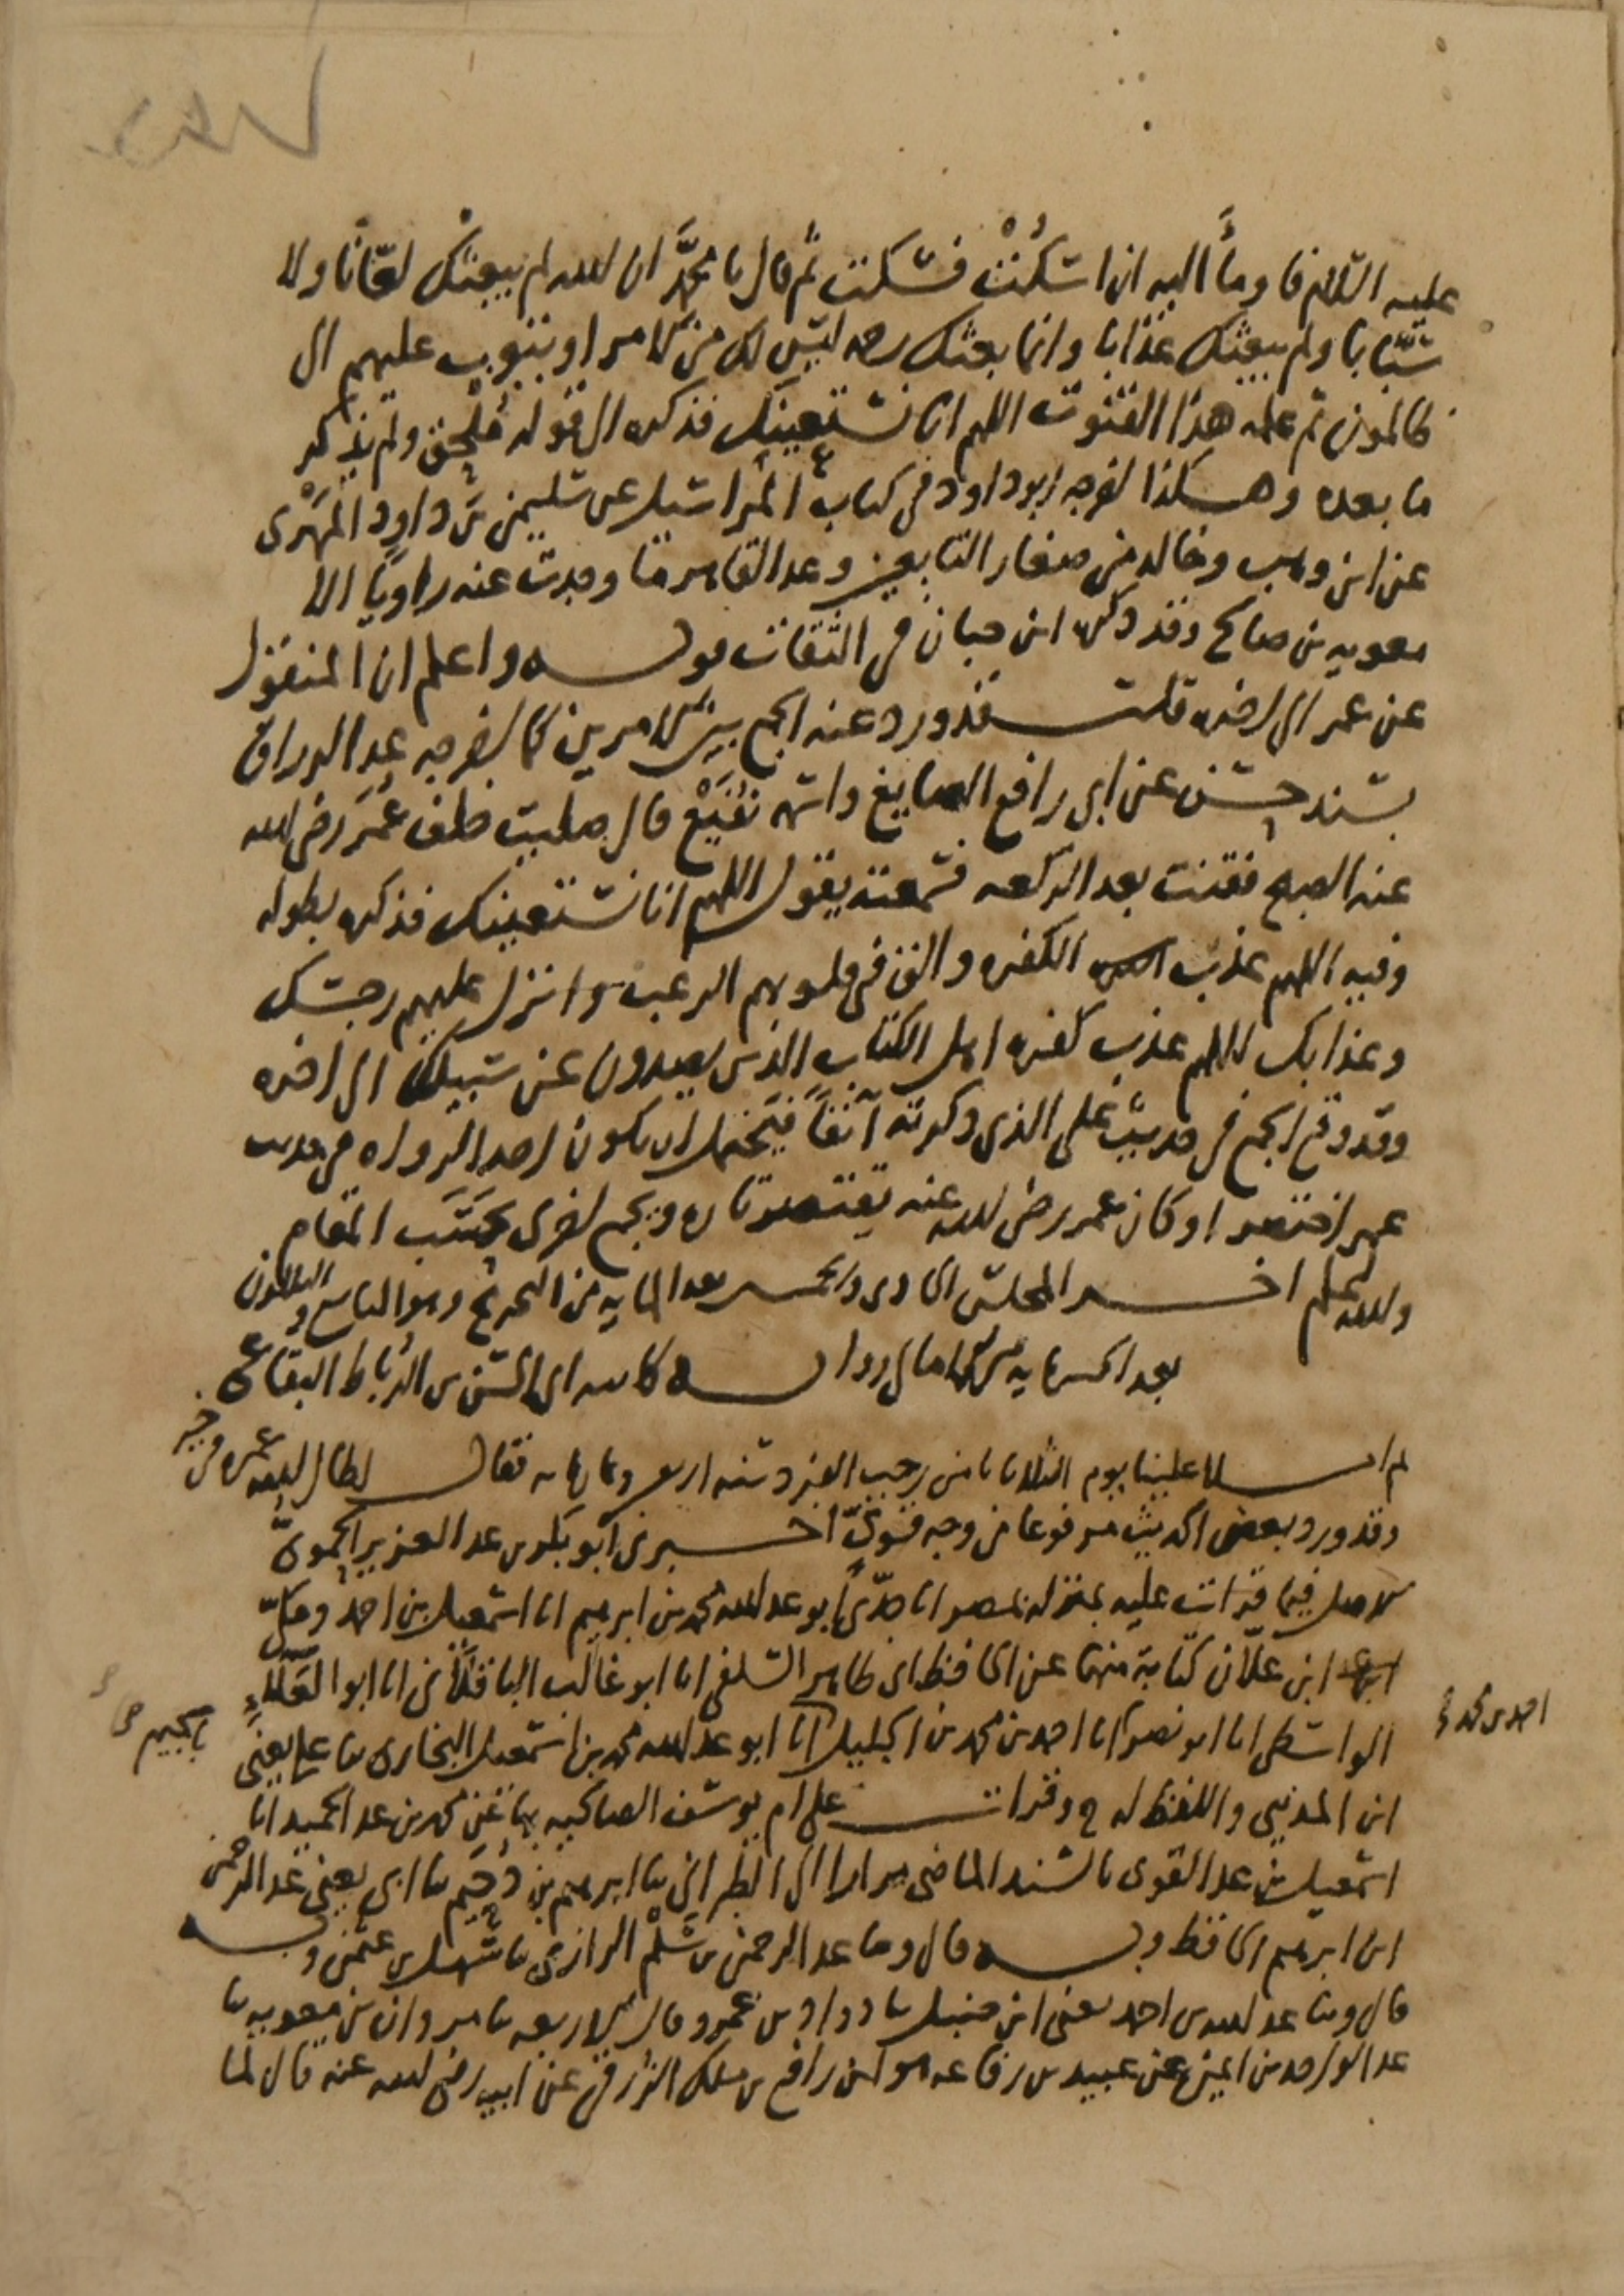 عليه السلام فاومأ اليه ان اسكُتْ فسكت ثم قال يا محمد ان الله لم يبعثك لعّانًا ولا
سبّابا ولم يبعثك عذابا وانما بعثك رحمة ليس لك من الامر او يتوب عليهم الى
ظالمون ثم علمه هذا القنوت اللهم انا نستعينك فذكره الى قوله مُلْحِق ولم يذكر
ما بعده وهكذا اخرجه ابو داود في كتاب المراسيل عن سليمن بن داود المَهْرى
عن ابن وهب وخالد من صغار التابعين وعبد القاهر ما وجدت عنه راويًا الا
معويه بن صالح وقد ذكره ابن حبان في الثقات قوله واعلم ان المنقول
عن عمر الى اخره قلت قد ورد عنه الجمع بين الامرين كما اخرجه عبد الرزاق
بسند حسن عن ابى رافع الصايغ واسمه نُفَيْع قال صليت خلف عُمَر رضى الله
عنه الصبح فقنت بعد الركعه فسمعته يقول اللهم انا نستعينك فذكره بطوله
وفيه اللهم عذب الكفره والق فى قلوبهم الرعب وانزل عليهم رجسك
وعذابك اللهم عذب كفره اهل الكتاب الذين يصدون عن سبيلك الى اخره
وقد وقع الجمع فى حديث على الذى ذكرته آنفًا فيحتمل ان يكون احد الرواه فى حديث
عمر اختصر او كان عمر رضى الله عنه يقتصر تاره ويجمع اخرى بحَسَب المقام
والله اعلم اخر المجلس الحادى والخمسين بعد المايه من التخريج وهو التاسع والثلاثون
بعد الخمسمايه من الامالى روايه كاتبه ابى الحسن بن الرُباط البقاعى
ثم املا علينا يوم الثلاثا ثامن رجب الفرد سنه اربع وثمانمايه فقال اطال الله عمره فى خير
وقد ورد بعض الحديث مرفوعا من وجه قوىّ اخبرنى ابو بكر بن عبد العزيز الحموىّ
الاصل فيما قرات عليه بمنزله بمصر انا جدّى ابو عبد الله محمد بن ابرهيم انا اسمعيل بن احمد ومكىّ
ابن علّان كتابة منهما عن الحافظ ابى طاهر السلفى انا ابو غالب الباقلّانى انا ابو العلاءِ
الواسطى انا ابو نصر احمد بن محمد انا احمد بن محمد بن الجليل بالجيم صح انا ابو عبد الله محمد بن اسمعيل البخارى ثنا على يعنى
ابن المدينى واللفظ له ح وقرات على ام يوسف الصالحيه بها عن محمد بن عبد الحميد انا
اسمعيل بن عبد القوى بالسند الماضى مرارا الى الطبرانى ثنا ابرهيم بن دُحَيم ثنا ابى يعنى عبد الرحمن
ابن ابرهيم الحافظ وبه قال وثنا عبد الرحمن بن سَلْم الرازى ثنا سهل بن عثمن وبه
قال وثنا عبد الله بن احمد يعنى ابن حنبل ثنا داود بن عمرو قال الاربعه ثنا مروان بن معويه ثنا
عبد الواحد بن ايمن عن عبيد بن رفاعه هو ابن رافع بن ملك الزُرَقى عن ابيه رضى الله عنه قال لما